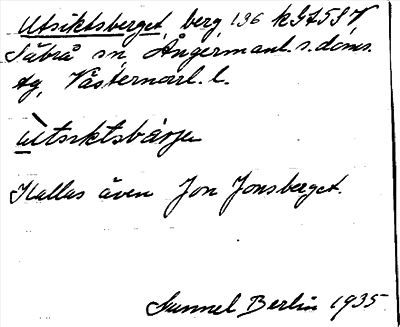 Utsiktsberget, berg, 136 kGZ5SV,
Säbrå sn, Ångermanl. s. doms.
tg, Västernorrl. l.
ùtsiktsbärje
Kallas även Jon Jonsberget.
Gunnel Berlin 1935.